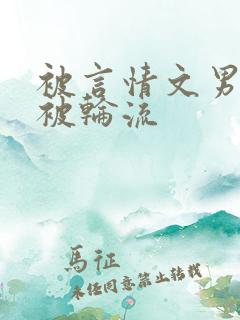 被言情文男
被輪流
馬征
未经同意禁止转载